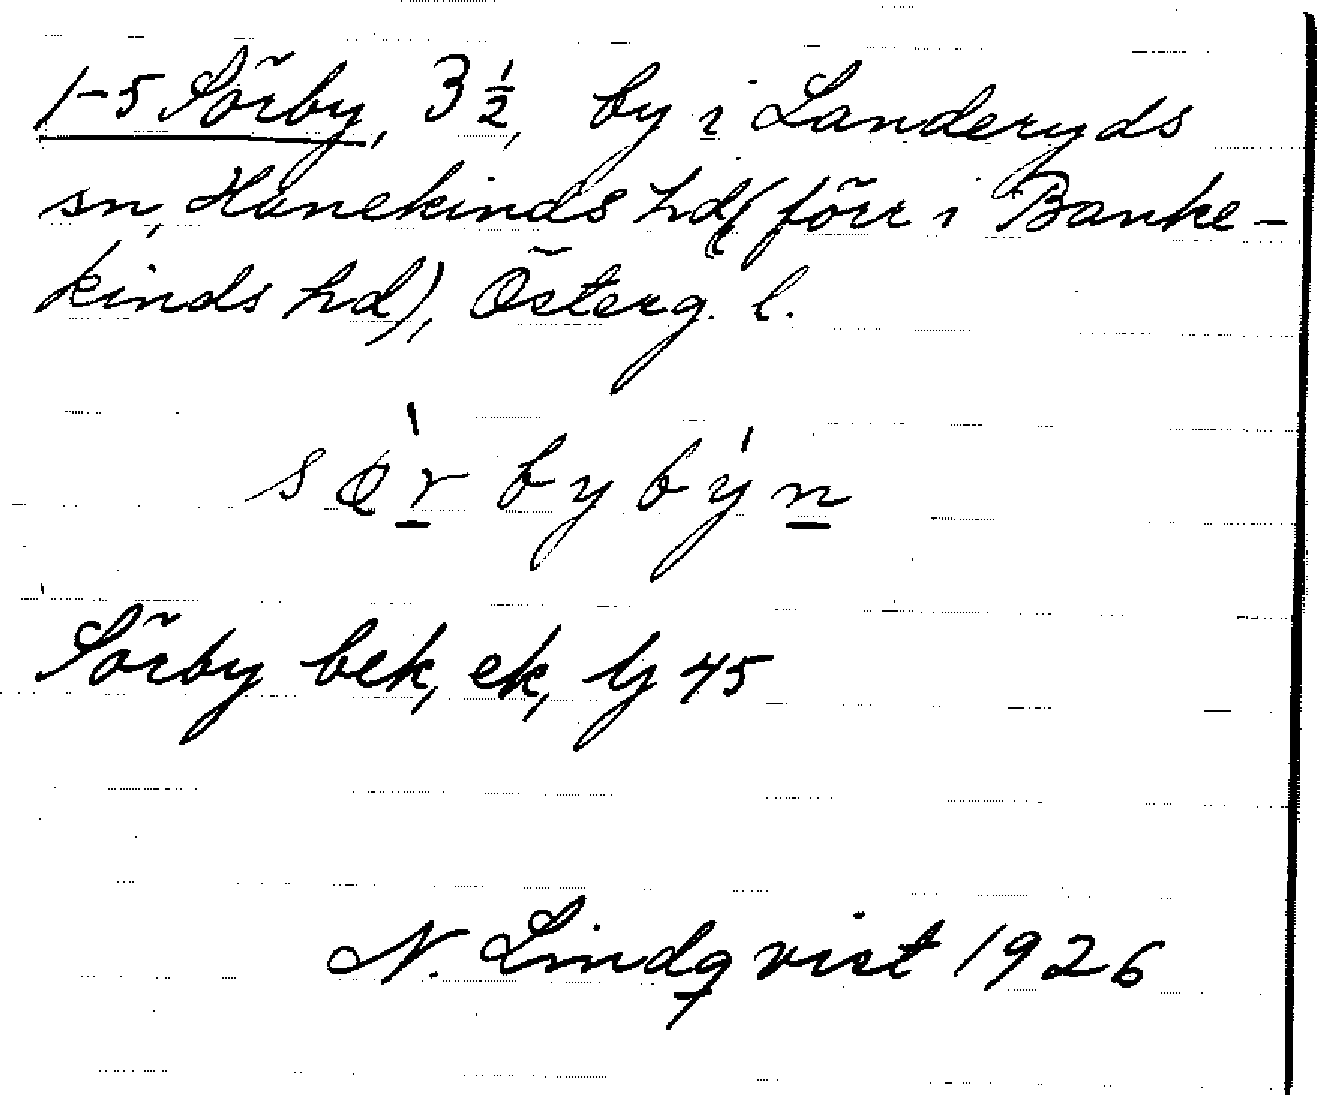 1-5 Sörby, 3 1/2, by i Landeryds
sn, Hanekinds hd (förr i Banke-
kinds hd), Österg. l.
sø̀r by bý n
Sörby bek, ek, lj 45
N. Lindqvist 1926